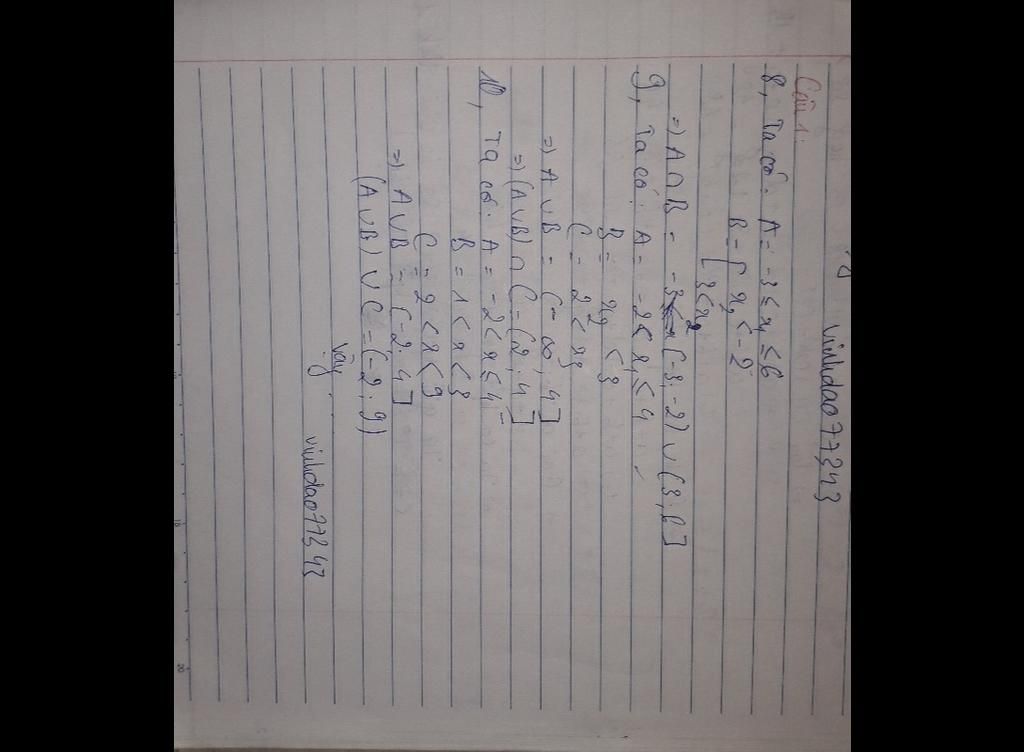 vinhdao77343
Câu 1.
8, Ta có: A = -3 ≤ x₁ ≤ 6
B = [ x₂ < -2
[ 3 < x₂
=) A ∩ B = (-3, -2) ∪ (3; 6]
9, Ta có: A = -2 < x₁ ≤ 4
B = x₂ < 3
C = 2 < x₃
=) A ∪ B = (-∞, 4]
=) (A ∪ B) ∩ C = (2, 4]
10, Ta có: A = -2 < x ≤ 4
B = 1 < x < 3
C = 2 < x < 9
=) A ∪ B = (-2. 4]
(A ∪ B) ∪ C = (-2, 9)
vậy
vinhdao77343